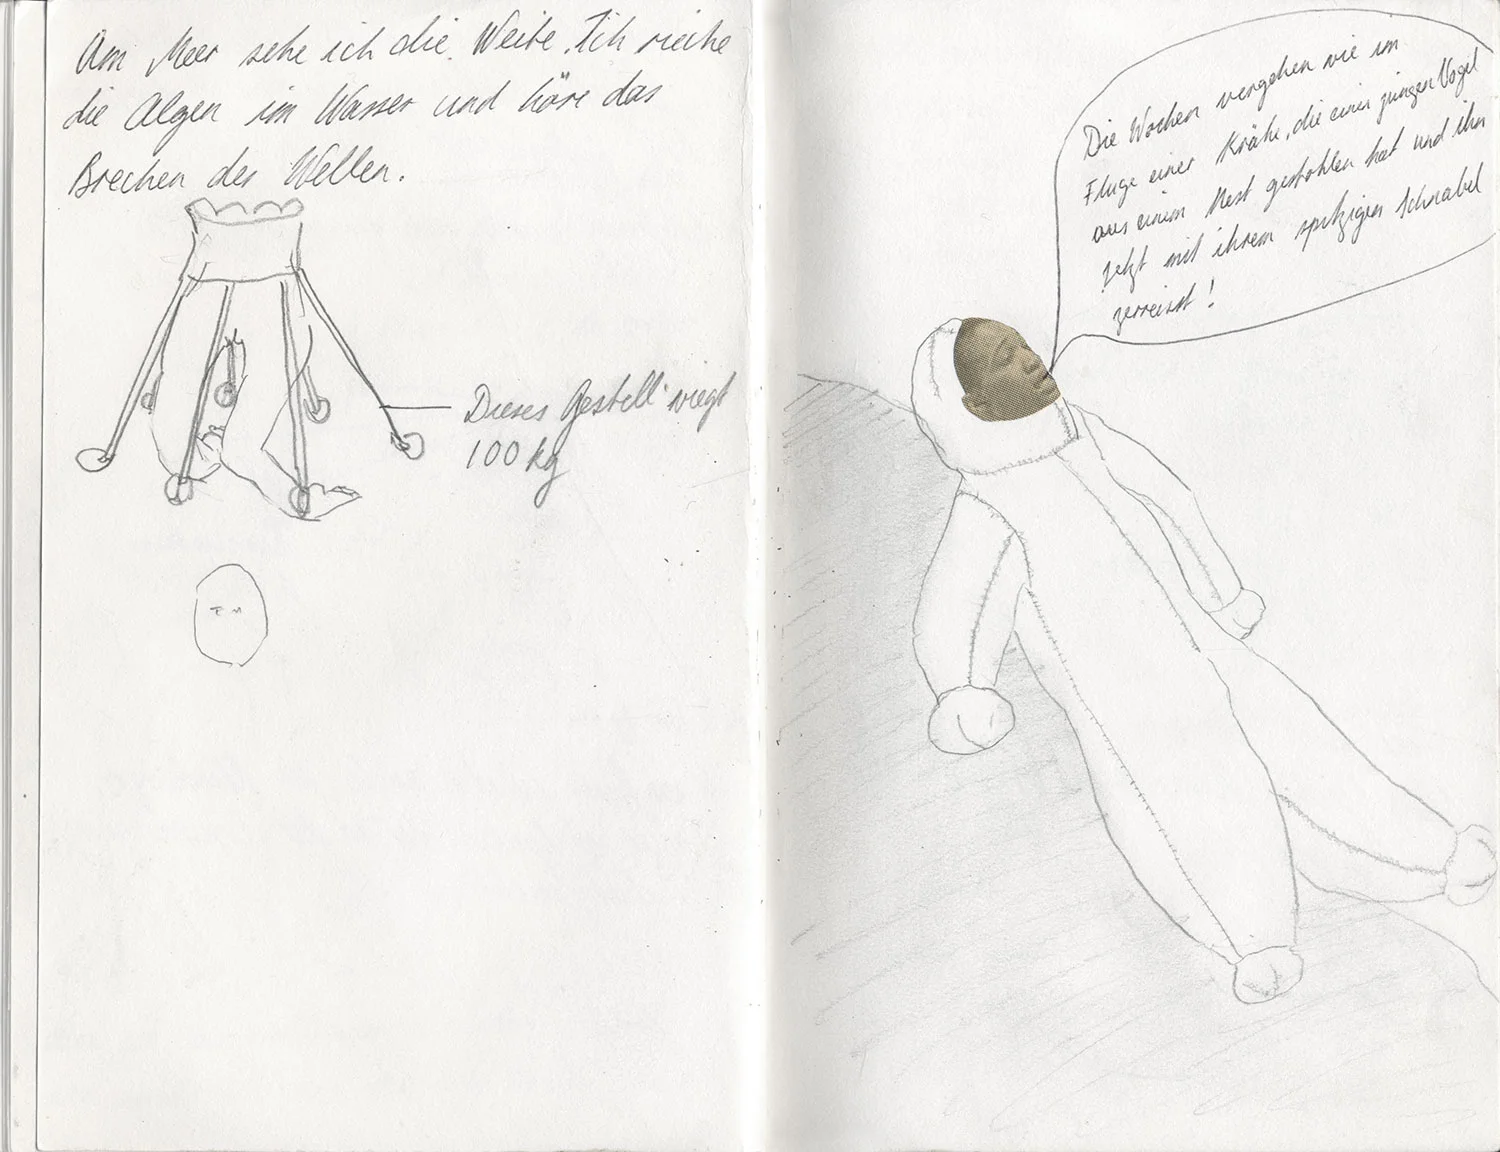 Am Meer sehe ich die Weite. Ich rieche
die Algen im Wasser und höre das
Brechen der Wellen.
Dieses Gestell wiegt
100 kg
Die Wochen vergehen wie im
Fluge einer Krähe, die einen jungen Vogel
aus einem Nest gestohlen hat und ihn
jetzt mit ihrem spitzigen Schnabel
zerreisst!